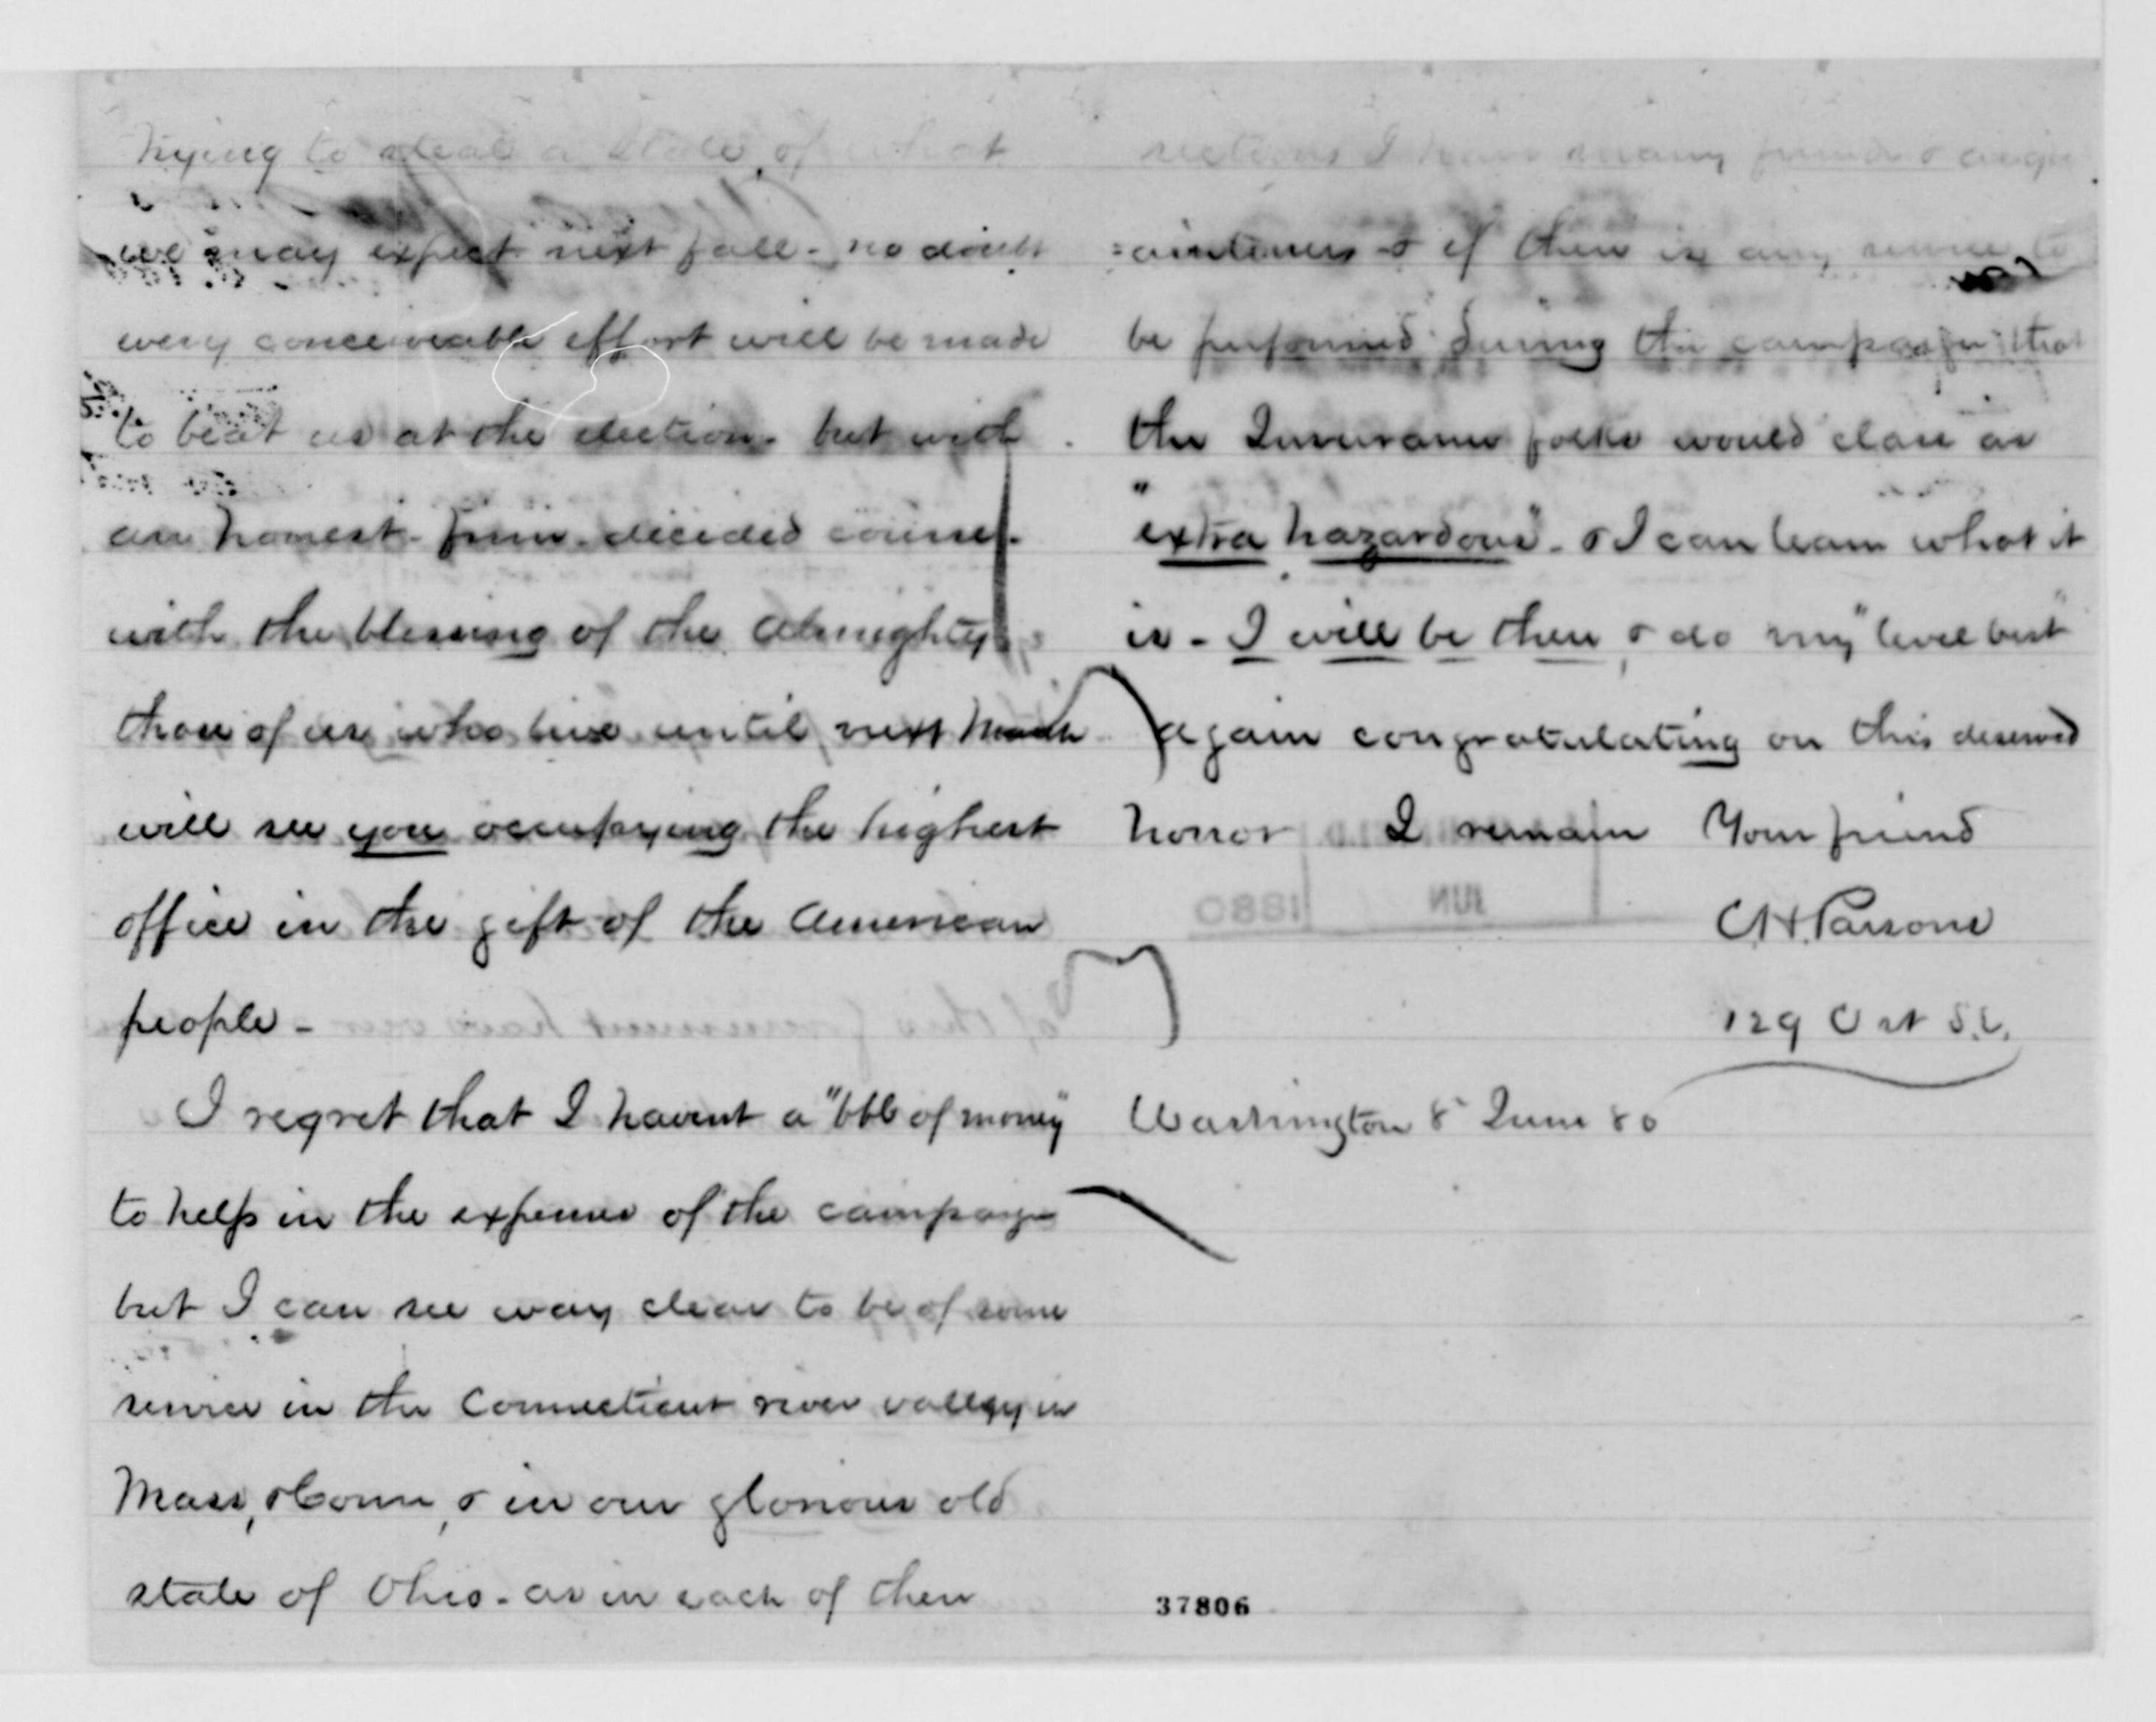 trying to steal a State of what
we may expect next fall - no doubt
every conceivable effort will be made
to beat us at the election. but with
an honest - firm - decided course -
with the blessing of the Almighty
those of us who live until next March
will see you occupying the highest
office in the gift of the American
people -
I regret that I havent a "bbl of money"
to help in the expenses of the campaign
but I can see way clear to be of some
service in the Connecticut river valley in
Mass, & Conn, & in our glorious old
state of Ohio - as in each of these
sections I have many friends & acqu
=aintences & if there is any service to
be performed during the campaign that
the Insurance folks would class as
"extra hazardous" - & I can learn what it
is - I will be there & do my "level best"
again congratulating on this deserved
honor I remain Your friend
C H. Parsons
129 C st S.E.
Washington 8 June 80
JUN 1880
37806